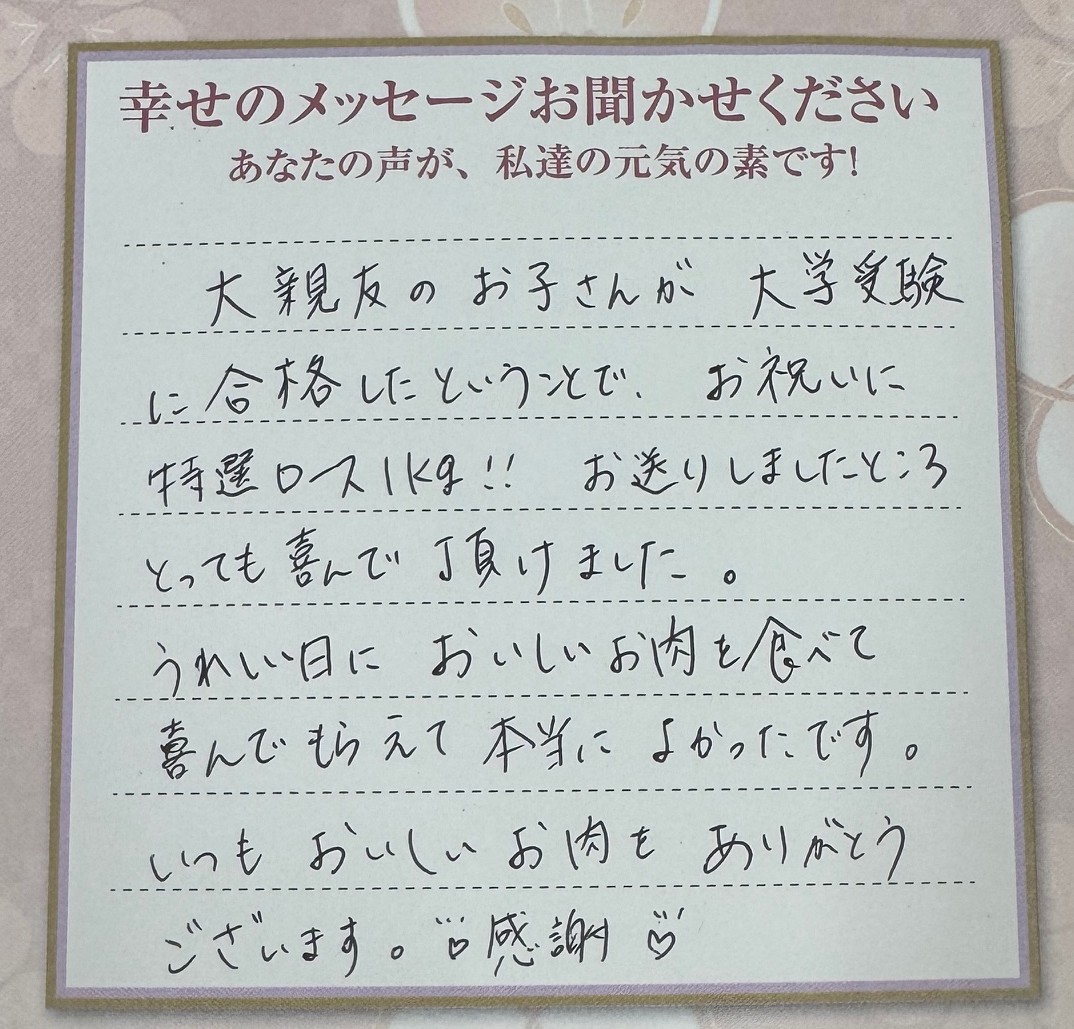 幸せのメッセージお聞かせください
あなたの声が、私達の元気の素です!
大親友のお子さんが 大学受験
に合格したということで、 お祝いに
特選ロース1kg!! お送りしましたところ
とっても喜んで頂けました。
うれしい日に おいしいお肉を食べて
喜んでもらえて 本当に よかったです。
いつも おいしい お肉を ありがとう
ございます。♡感謝♡